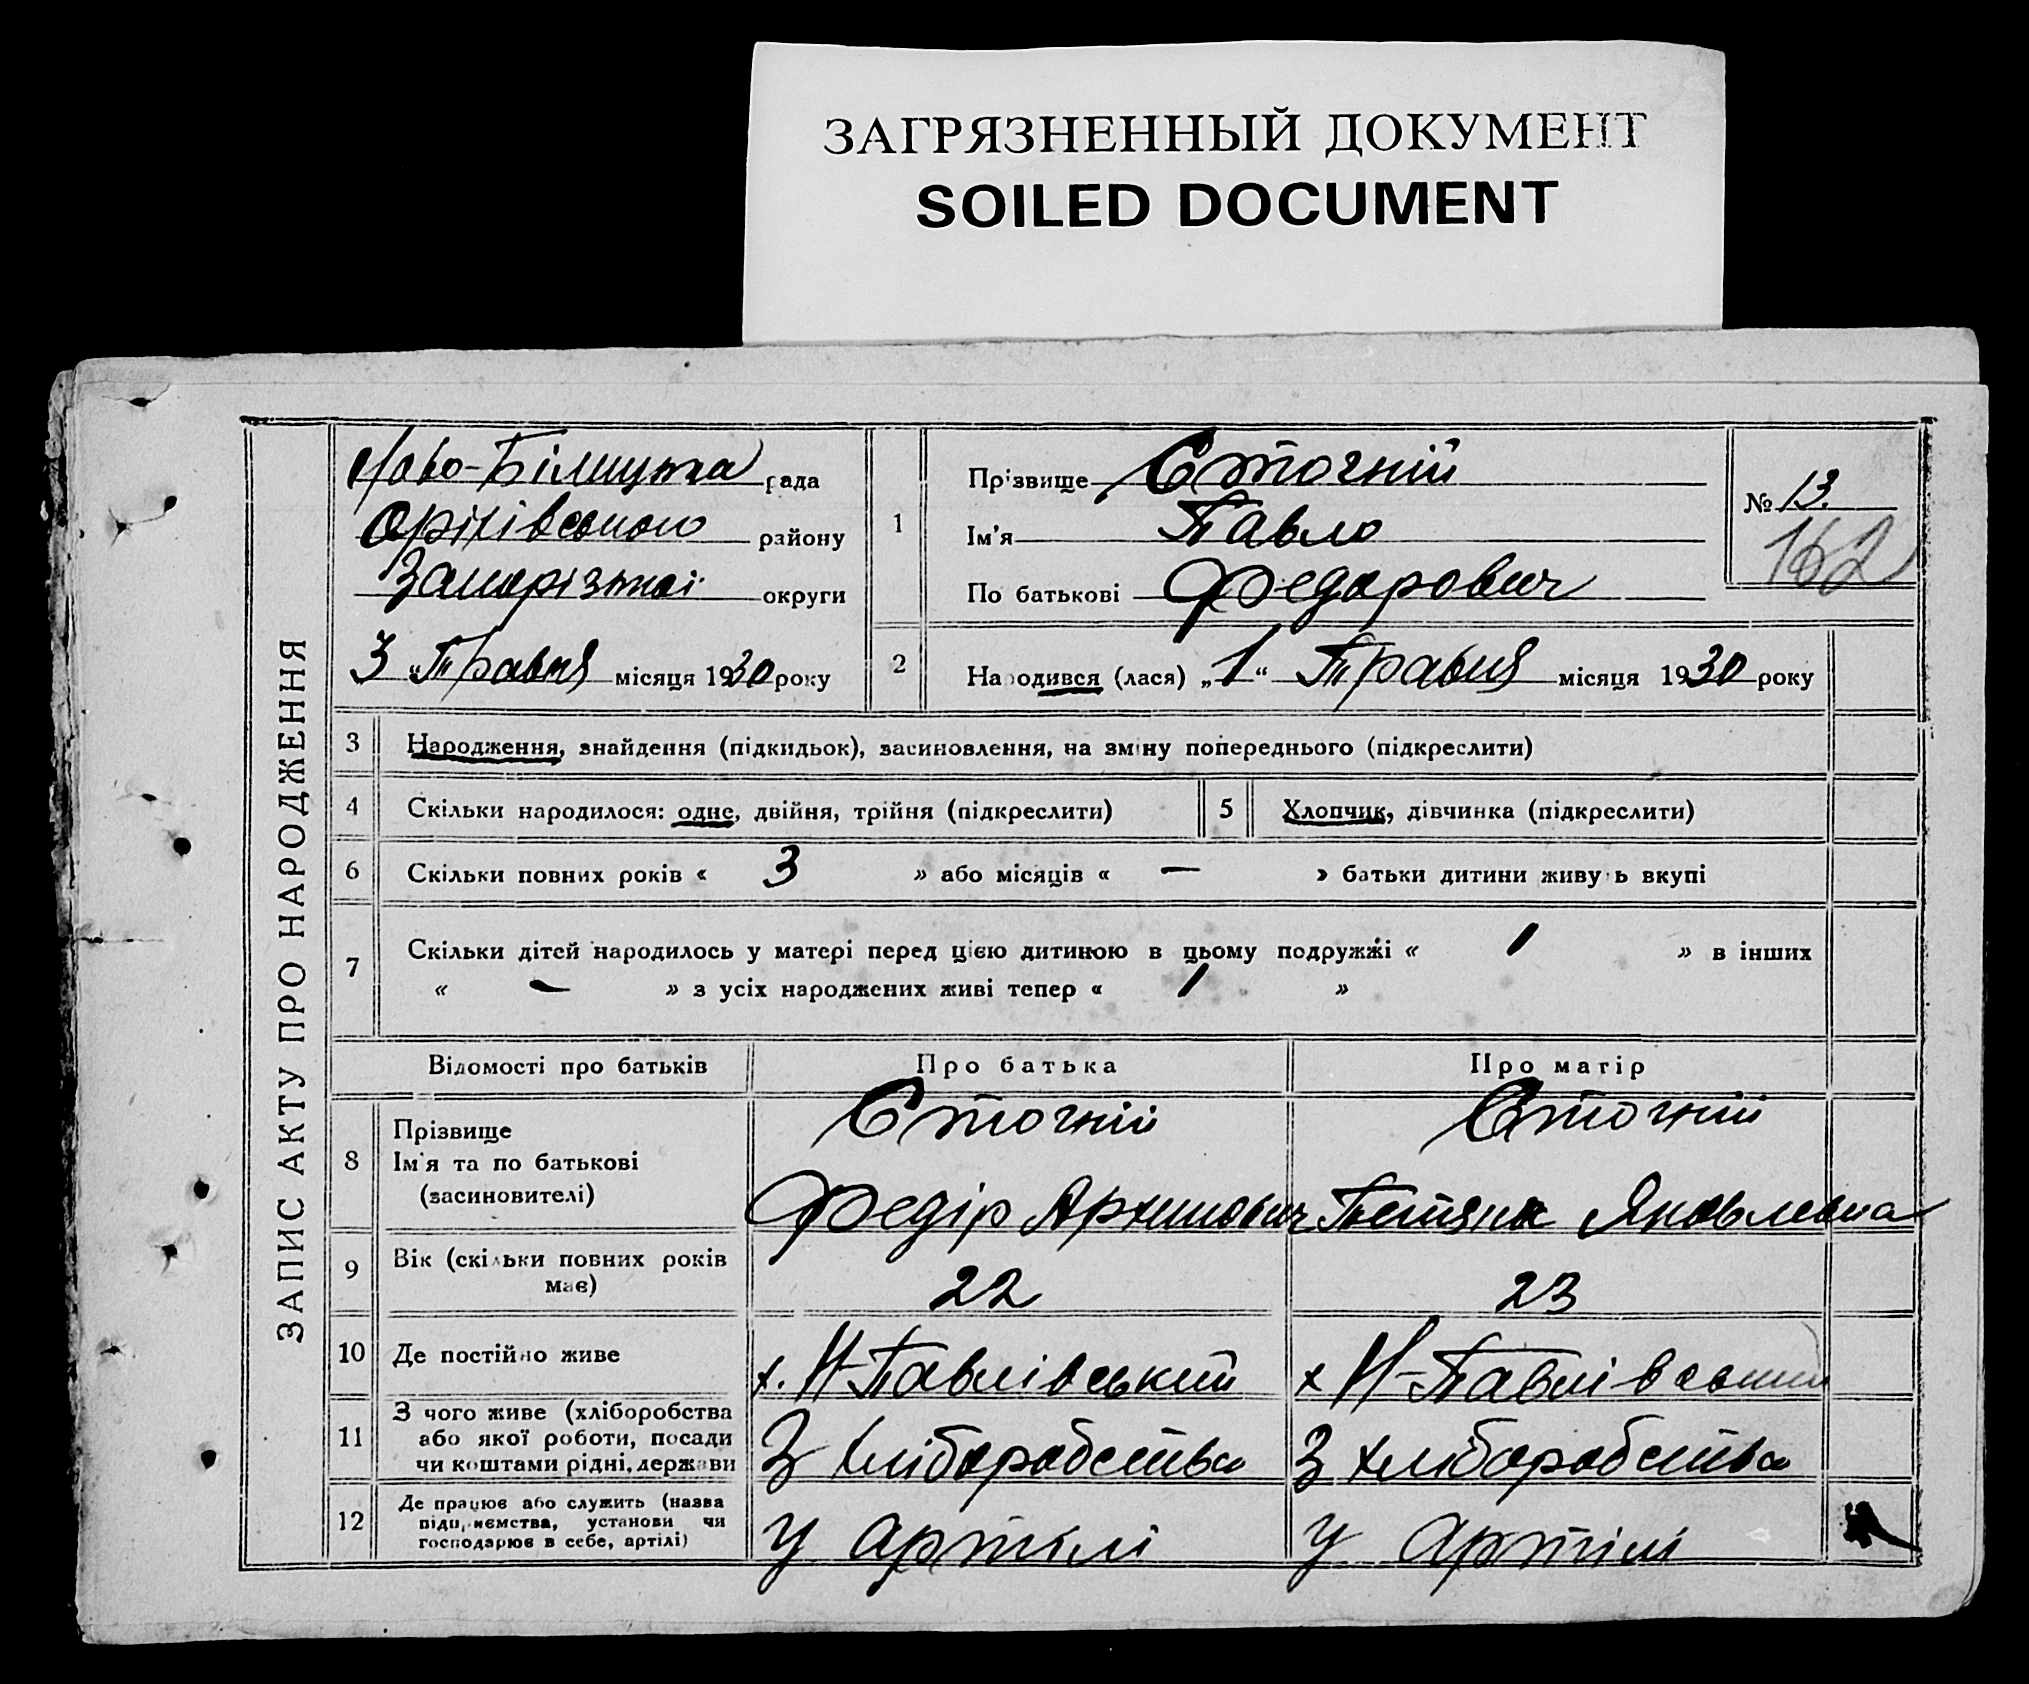 ЗАГРЯЗНЕННЫЙ ДОКУМЕНТ
SOILED DOCUMENT
ЗАПИС АКТУ ПРО НАРОДЖЕННЯ
рада
Оріхівського району
Запорізької округи
3 „Травня місяця 1930 року
1
Прізвище Стогній
Ім'я Павло
По батькові Федорович
№ 13.
162
2
Народився (лася) „1“ Травня місяця 1930 року
3 Народження, знайдення (підкидьок), засиновлення, на зміну попереднього (підкреслити)
4 Скільки народилося: одне, двійня, трійня (підкреслити)
5 Хлопчик, дівчинка (підкреслити)
6 Скільки повних років « 3 » або місяців « — » батьки дитини живуть вкупі
7 Скільки дітей народилось у матері перед цією дитиною в цьому подружжі « 1 » в інших
« — » з усіх народжених живі тепер « 1 »
Відомості про батьків Про батька Про матір
8 Прізвище
Ім'я та по батькові
(засиновителі)
Стогній
Федір Архипович
Стогній
Тетяна Яковлевна
9 Вік (скільки повних років
має)
22
23
10 Де постійно живе
х. Н-Павлівський
х Н-Павлівський
11 З чого живе (хліборобства
або якої роботи, посади
чи коштами рідні, держави
З хліборобства
З хліборобства
12 Де працює або служить (назва
підприємства, установи чи
господарює в себе, артілі)
У артілі
У артілі